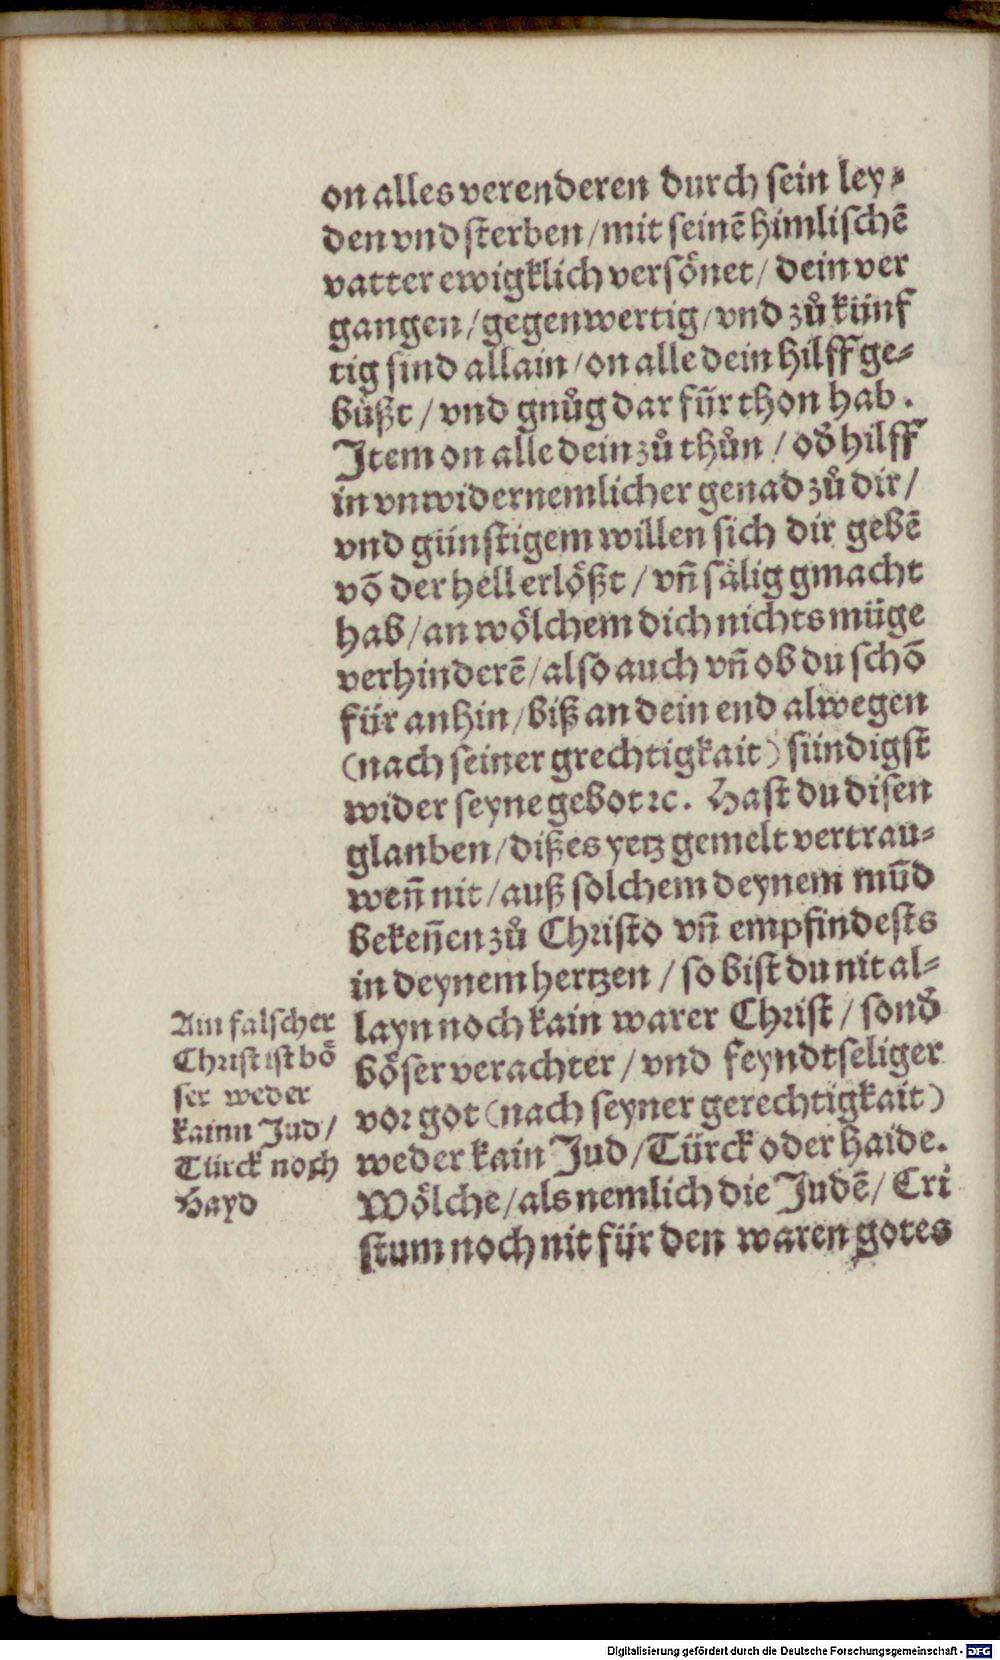 on alles verenderen durch sein ley⸗
den vnd sterben / mit seinē himlischē
vatter ewigklich versönet / dein ver
gangen / gegenwertig / vnd zů künf
tig sind allain / on alle dein hilff ge⸗
bůßt / vnd gnůg dar für thon hab.
Item on alle dein zů thůn / od̄ hilff
in vnwidernemlicher genad zů dir /
vnd günstigem willen sich dir gebē
vō der hell erlößt / vn̄ sälig gmacht
hab / an wölchem dich nichts müge
verhinderē / also auch vn̄ ob du schō
für anhin / biß an dein end alwegen
(nach seiner grechtigkait) sündigst
wider seyne gebot ꝛc. Hast du disen
glauben / dißes yetz gemelt vertrau⸗
wen̄ nit / auß solchem deynem mūd
beken̄en zů Christo vn̄ empfindests
in deynem hertzen / so bist du nit al⸗
layn noch kain warer Christ / sond̄
böser verachter / vnd feyndtseliger
vor got (nach seyner gerechtigkait)
weder kain Jud / Türck oder Haide.
Wölche / als nemlich die Judē / Cri
stum noch nit für den waren gotes
Ain falscher
Christ ist bö
ser weder
kainn Jud /
Türck noch
Hayd
Digitalisierung gefördert durch die Deutsche Forschungsgemeinschaft - DFG